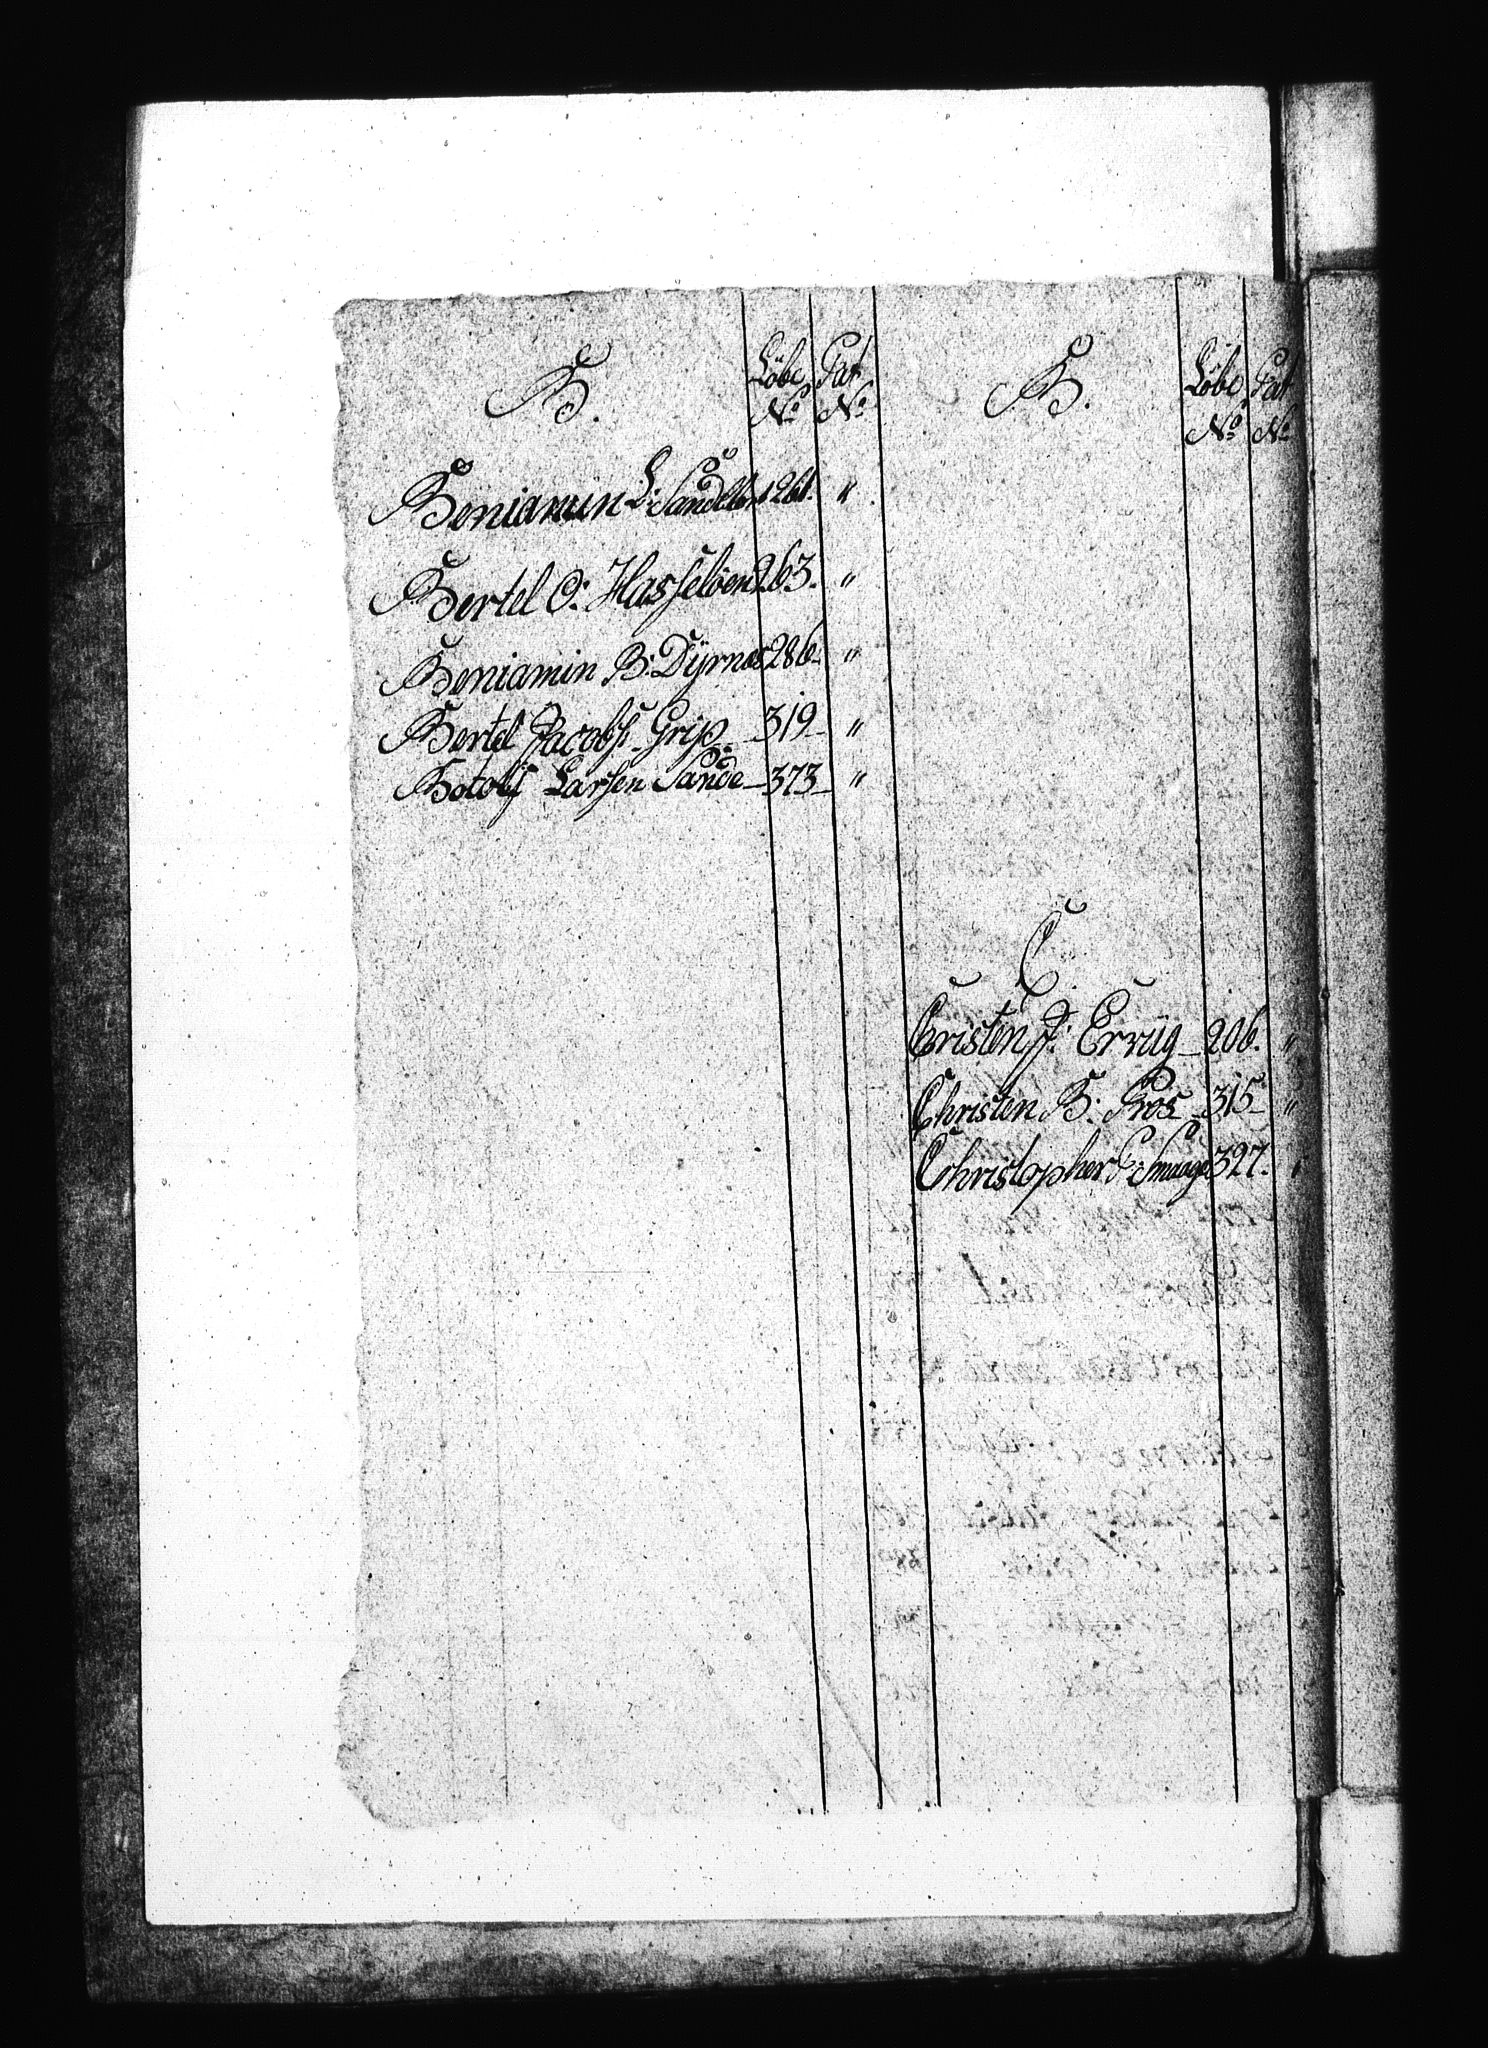 B.
Löbe Pat
No No
Beniamin L: 261. "
Bertel O: Hasselöen 263. "
Beniamin B: Dyrnes 286 "
Bertel Jacobs: Grip 319 "
Botolf Larsen Sande 373 "
B.
Löbe Pat
No No
C.
Cristen J: 206. "
Christen B: 315 "
Christopher Smaage 327. "